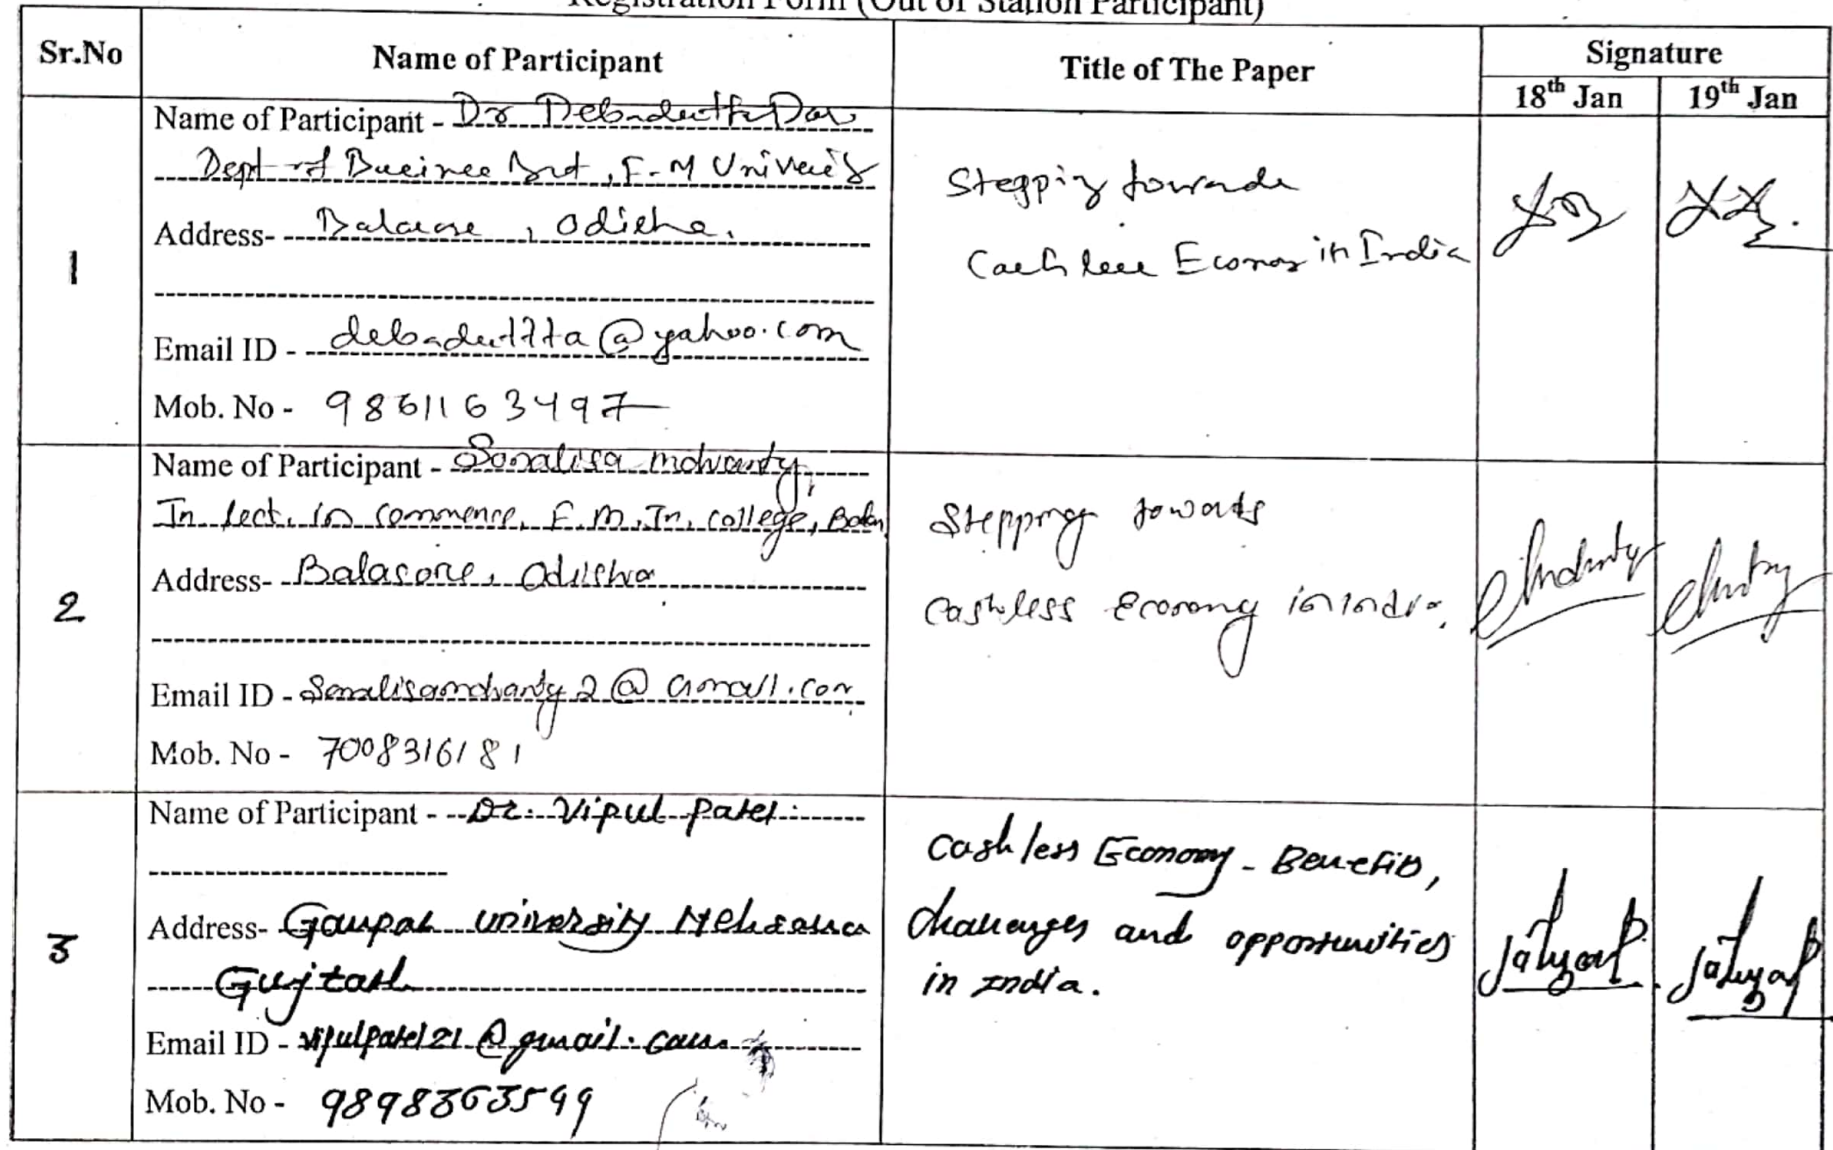 Registration Form (Out of Station Participant)
Sr.No
Name of Participant
Title of The Paper
Signature
18th Jan
19th Jan
1
Name of Participant - Dr Debadutta Das
Dept of Business Adt, F.M University
Address- Balasore, Odisha.
Email ID - debadutta@yahoo.com
Mob. No - 9861163497
Stepping towards
Cashless Economy in India
2
Name of Participant - Sonalisa mohanty,
Jn lect. in commerce, F.M. Jn. college,
Address- Balasore, Odisha
Email ID - Sonalisamohanty2@Gmail.com
Mob. No - 7008316181
Stepping towards
Cashless Economy in India.
3
Name of Participant - Dr. Vipul Patel
Address- Ganpat University Mehsana
Gujtarat
Email ID - vipulpatel21@gmail.com
Mob. No - 9898363599
Cashless Economy - Benefits,
challenges and opportunities
in India.